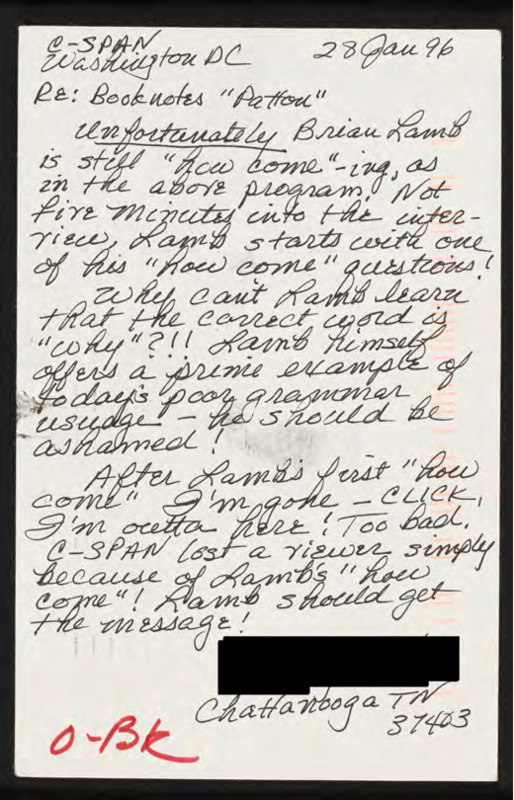 C-SPAN
Washington DC 28 Jan 96
RE: Booknotes "Patton"
Unfortunately Brian Lamb
is still "how come"-ing, as
in the above program. Not
five minutes into the inter-
view, Lamb starts with one
of his "how come" questions!
Why can't Lamb learn
that the correct word is
"why"?!! Lamb himself
offers a prime example of
today's poor grammar
usuage - he should be
ashamed!
After Lamb's first "how
come" I'm gone - CLICK,
I'm outta here! Too bad.
C-SPAN lost a viewer simply
because of Lamb's "how
come"! Lamb should get
the message!
Chattanooga TN
37403
O-BK